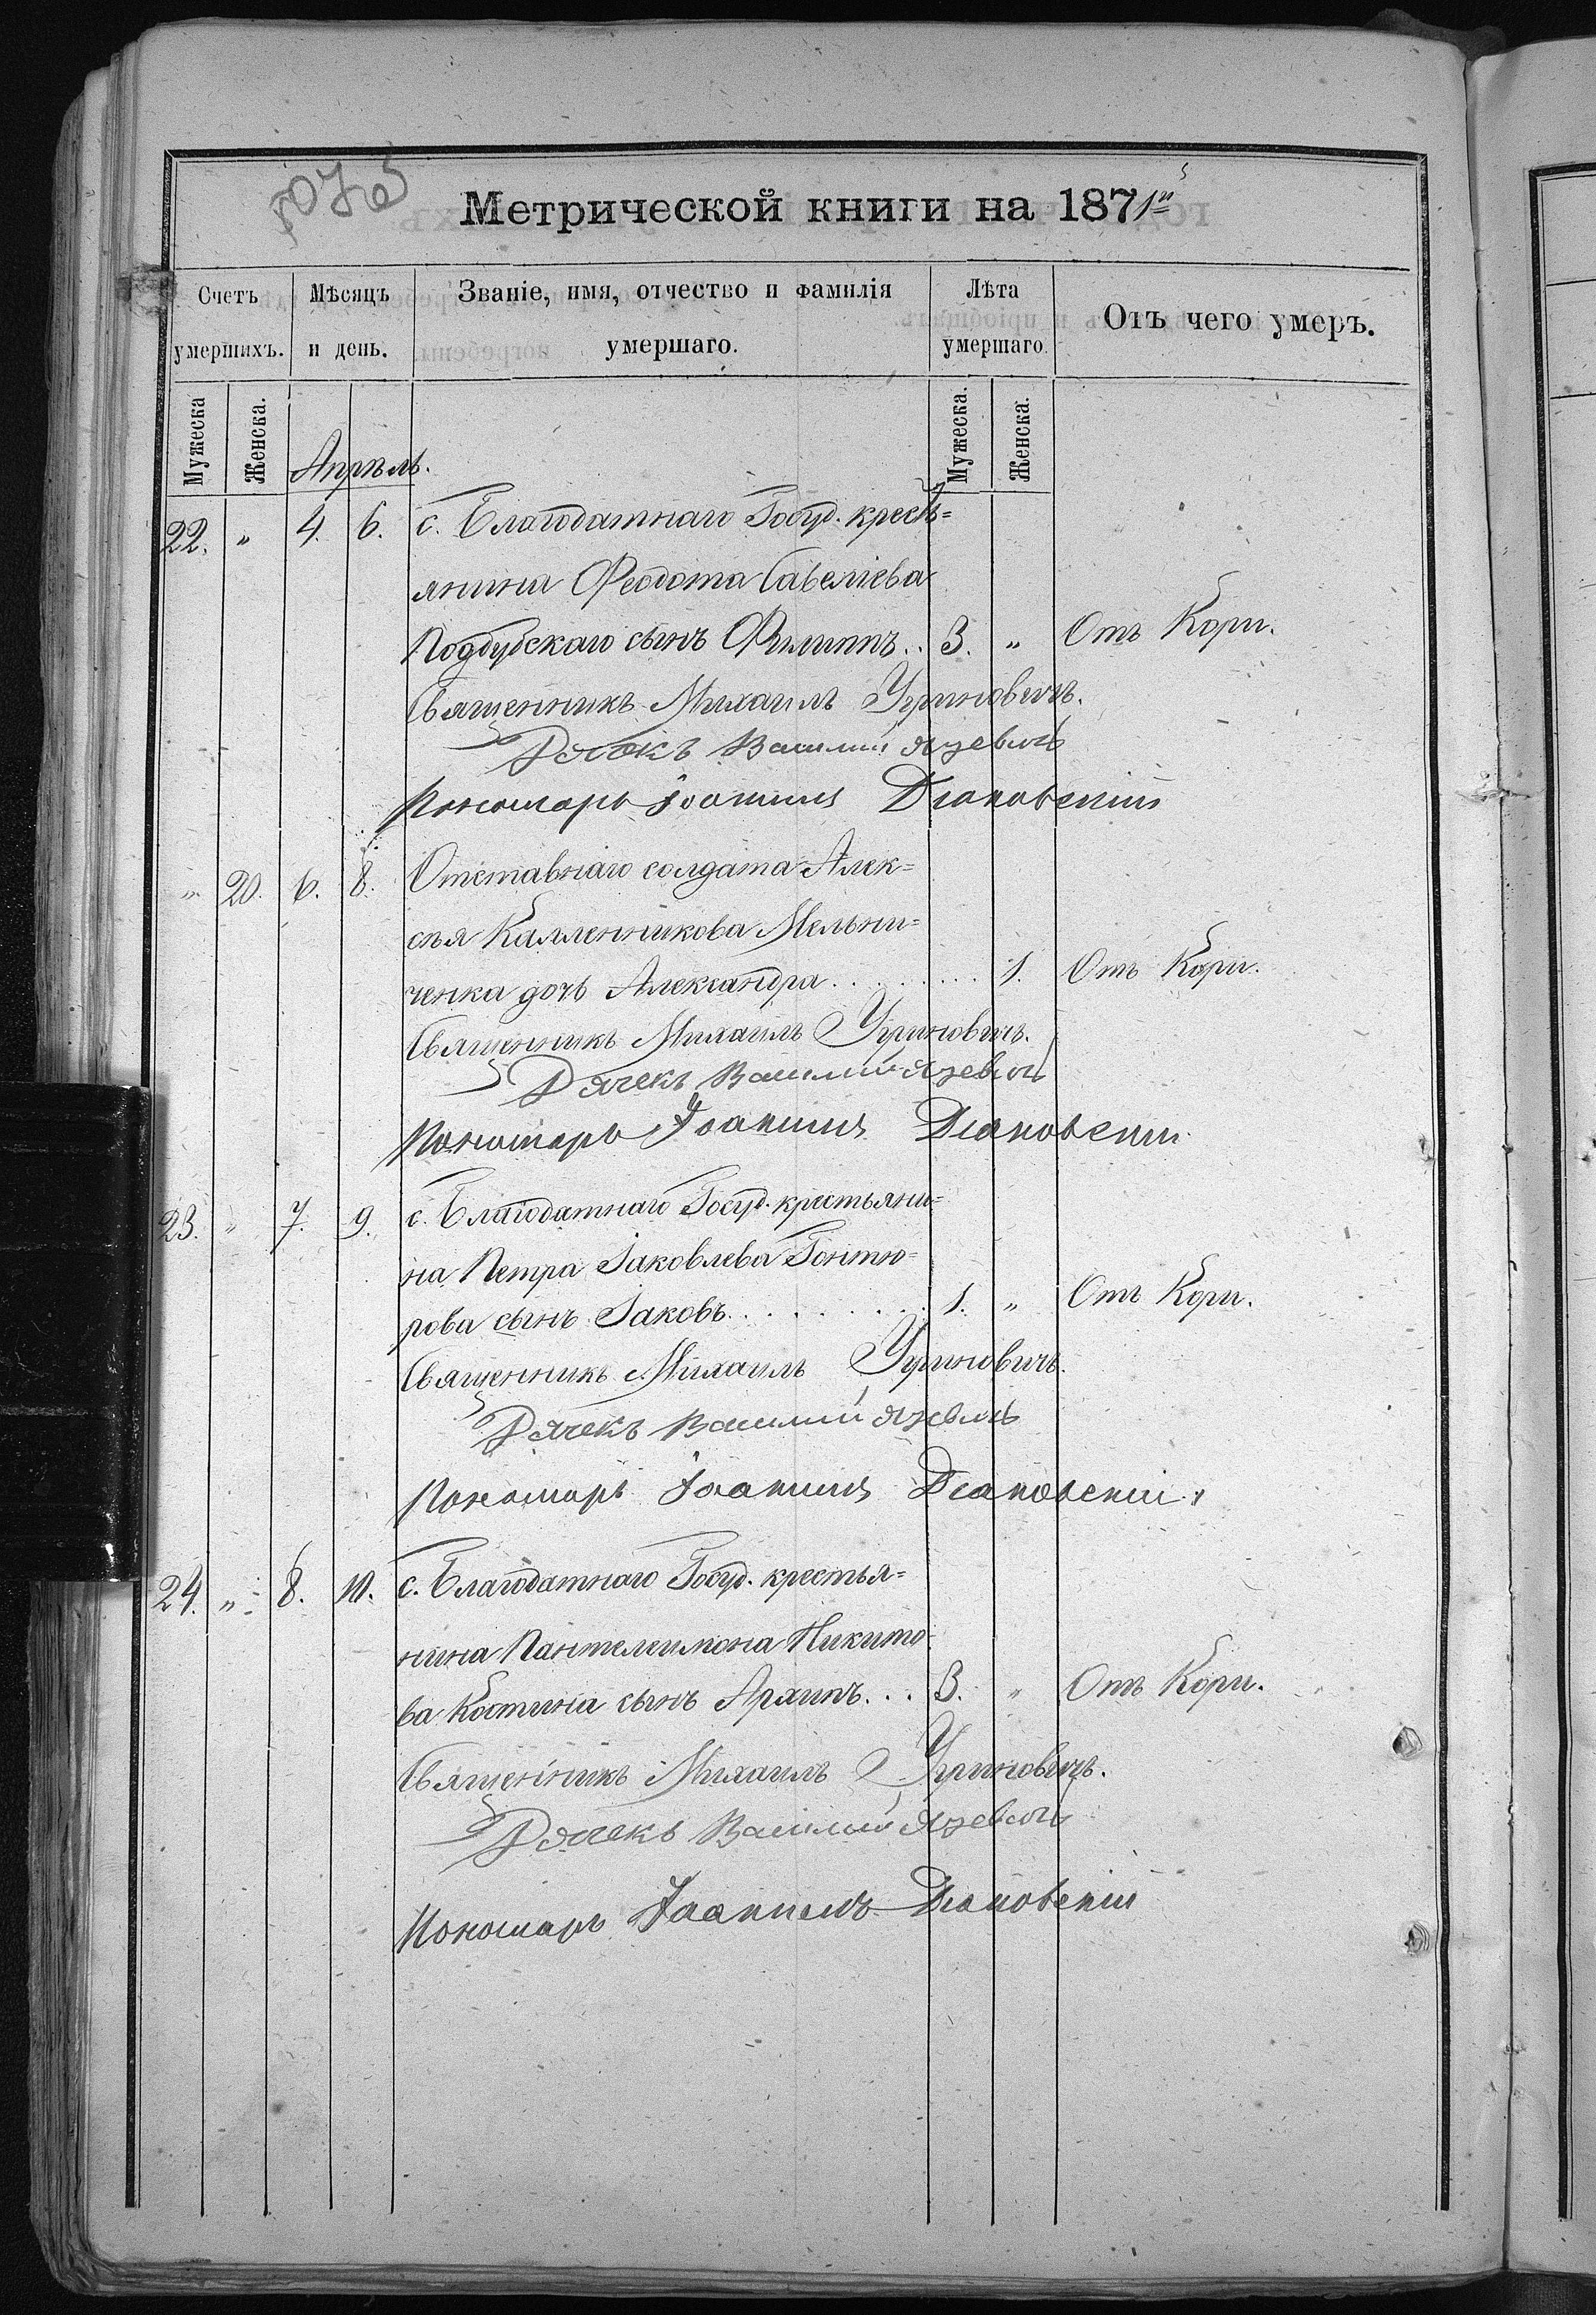 Метрической книги на 1871й
Счетъ умершихъ.
Мѣсяцъ и день.
Званіе, имя, отчество и фамилія умершаго.
Лѣта умершаго.
Отъ чего умеръ.
Мужеска
Женска.
Мужеска.
Женска.
Апрѣль.
22. " 4. 6. с. Благодатнаго Госуд. кресть=
янина Феодота Савеліева
Поддубскаго сынъ Филиппъ.. 3. " Отъ Кори.
Священникъ Михаилъ Угриновичъ.
Дячекъ Василий Язевичъ
Пономарь Іоакимъ
" 20. 6. 8. Отставнаго солдата Алек=
сѣя Калленникова Мельни=
ченка дочь Александра......... 1. Отъ Кори.
Священникъ Михаилъ Угриновичъ.
Дячекъ Василий Язевичъ
Пономарь Іоакимъ
23. " 7. 9. с. Благодатнаго Госуд. крестьяни=
на Петра Іаковлева Гонтю=
рова сынъ Іаковъ......... 1. " Отъ Кори.
Священникъ Михаилъ Угриновичъ.
Дячекъ Василий Язевичъ
Пономарь Іоакимъ
24. " 8. 10. с. Благодатнаго Госуд. крестья=
нина Пантелеимона Никито
ва Костина сынъ Архипъ... 3. " Отъ Кори.
Священникъ Михаилъ Угриновичъ.
Дячекъ Василий Язевичъ
Пономарь Іоакимъ